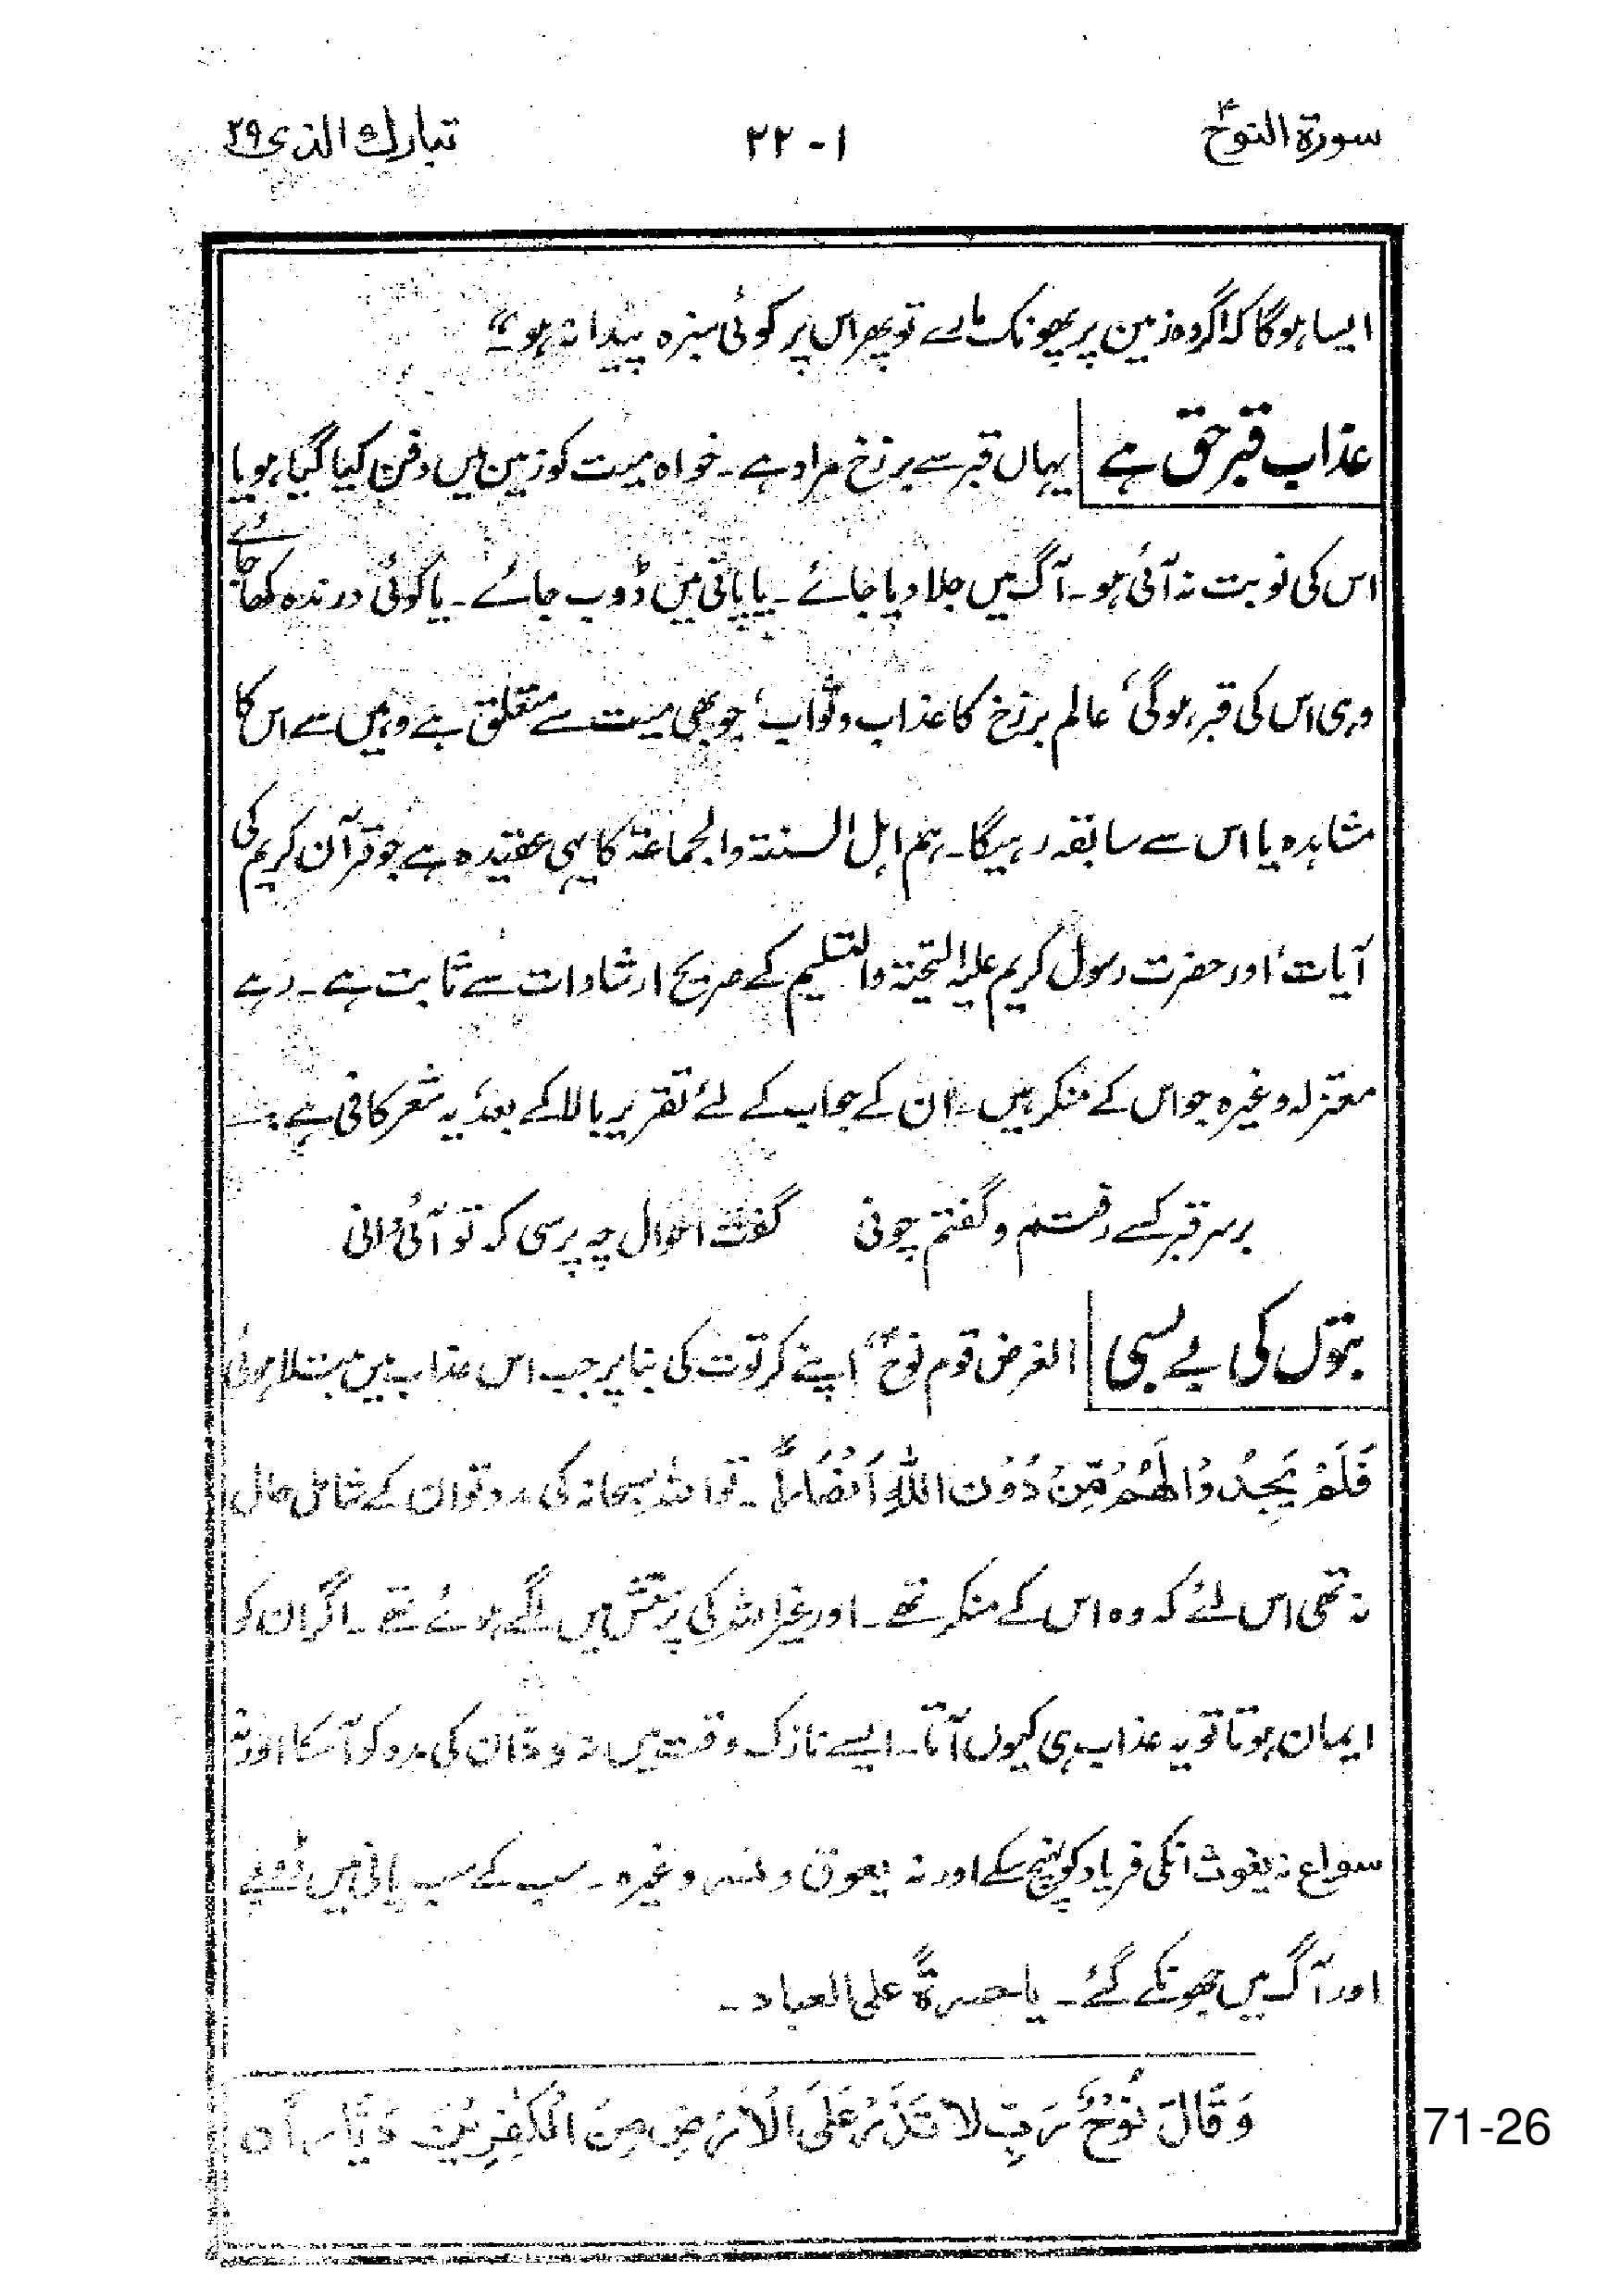 سورۃ النوحؑ
۲۲-۱
تبارك الذی ۲۹
ایسا ہوگا کہ اگر وہ زمین پر پھونک مارے تو پھر اس پر کوئی سبزہ پیدا نہ ہو"
عذاب قبر حق ہے یہاں قبر سے برزخ مراد ہے۔ خواہ میت کو زمین میں دفن کیا گیا ہو یا
اس کی نوبت نہ آئی ہو۔ آگ میں جلا دیا جائے۔ یا پانی میں ڈوب جائے۔ یا کوئی درندہ کھا جائے
وہی اس کی قبر ہوگی، عالم برزخ کا عذاب و ثواب، جو بھی میت سے متعلق ہے وہیں سے اس کا
مشاہدہ یا اس سے سابقہ رہیگا۔ ہم اہل السنتہ والجماعۃ کا یہی عقیدہ ہے جو قرآن کریم کی
آیات، اور حضرت رسول کریم علیہ التحیۃ والتسلیم کے صریح ارشادات سے ثابت ہے۔ رہے
معتزلہ وغیرہ جو اس کے منکر ہیں۔ ان کے جواب کے لئے تقریر بالا کے بعد یہ شعر کافی ہے:۔
برسر قبر کسے رفتم و گفتم چونی گفت احوال چہ پرسی کہ تو آئی دانی
بتوں کی بے بسی الغرض قوم نوحؑ اپنے کرتوت کی بنا پر جب اس عذاب میں مبتلا ہوئی
فَلَمْ يَجِدُوْا لَهُمْ مِّنْ دُوْنِ اللّٰهِ اَنْصَارًا۔ تو اللہ سبحانہ کی مدد تو ان کے شامل حال
نہ تھی اس لئے کہ وہ اس کے منکر تھے۔ اور غیر اللہ کی پرستش میں لگے ہوئے تھے۔ اگر ان کو
ایمان ہوتا تو یہ عذاب ہی کیوں آتا۔ ایسے نازک وقت میں نہ ودّ ان کی مدد کو آسکا اور نہ
سواع نہ یغوث انکی فریاد کو پہنچ سکے اور نہ یعوق و نسر وغیرہ۔ سب کے سب پانی میں ڈوبے
اور آگ میں جھونکے گئے۔ یا حسرةً علی العباد۔
وَ قَالَ نُوْحٌ رَّبِّ لَا تَذَرْ عَلَى الْاَرْضِ مِنَ الْكٰفِرِيْنَ دَيَّارًا ○
71-26